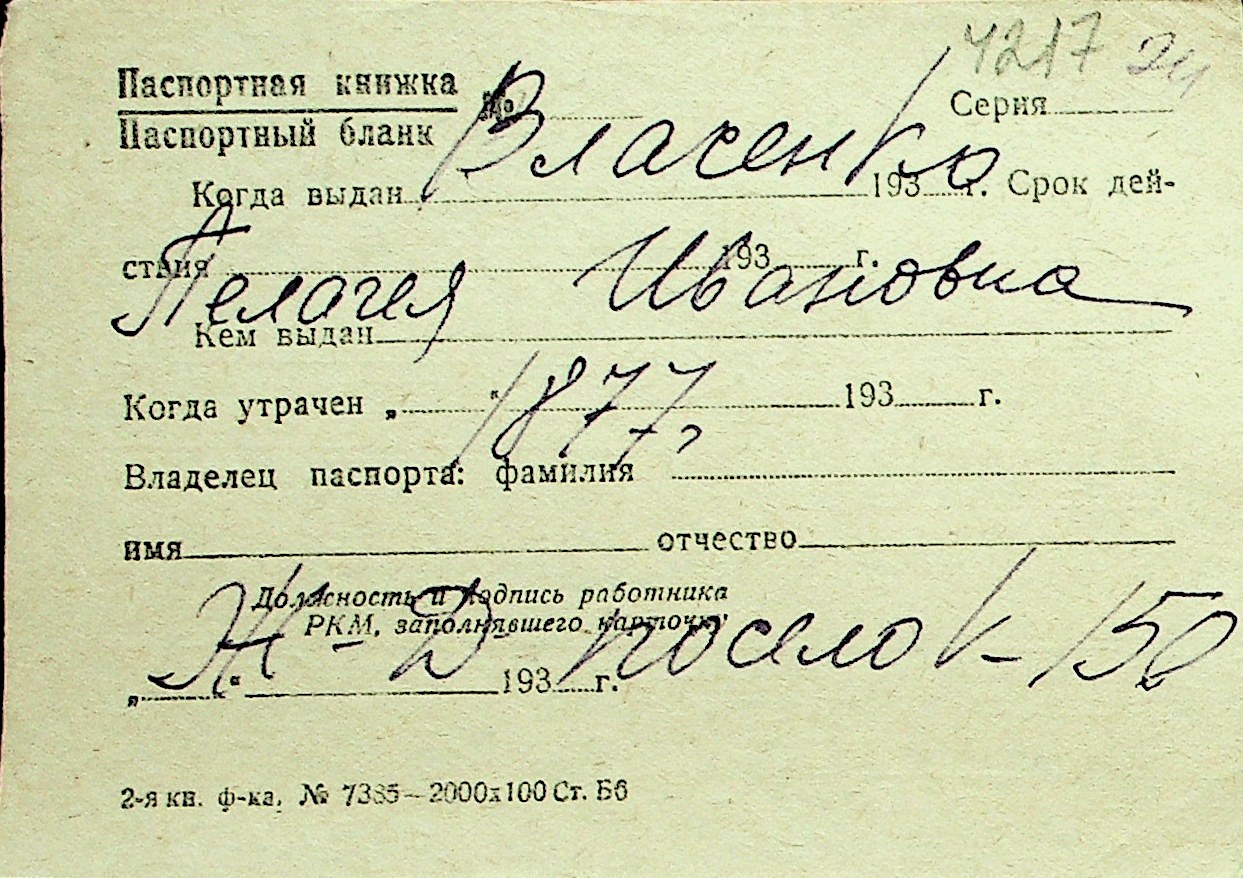 4217 24
Паспортная книжка
Паспортный бланк
№ Серия
Власенко
Когда выдан 193 г. Срок дей-
ствия 193 г.
Пелагея Ивановна
Кем выдан
1877,
Когда утрачен „ “ 193 г.
Владелец паспорта: фамилия
имя отчество
Должность и подпись работника
РКМ, заполнявшего карточку
Ж-Д поселок 150
„ “ 193 г.
2-я кн. ф-ка. № 7385—2000х100 Ст. Б6